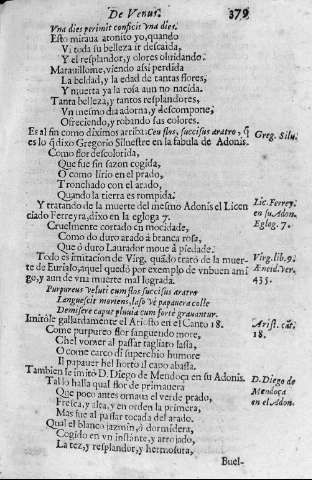 De Venus. 379
Vna dies perimit conficit vna dies.
Esto miraua atonito yo, quando
Vi toda su belleza ir descaida,
Y el resplandor, y olores oluidando.
Marauillome, viendo assi perdida
La beldad, y la edad de tantas flores,
Y muerta ya la rosa aun no nacida.
Tanta belleza, y tantos resplandores,
Vn mesmo dia adorna, y descompone,
Ofreciendo, y robando sus colores.
Es al fin como diximos arriba: Ceu flos, succisus aratro, q̃
es lo q̃ dixo Gregorio Siluestre en la fabula de Adonis.
Greg. Silu.
Como flor descolorida,
Que fue sin sazon cogida,
O como lirio en el prado,
Tronchado con el arado,
Quando la tierra es rompida.
Y tratando de la muerte del mesmo Adonis el Licen
ciado Ferreyra, dixo en la egloga 7.
Lic. Ferrey.
en su Adon.
Eglog. 7.
Cruelmente cortado en mocidade,
Como do duro arado â branca rosa,
Que ó duro Laurador moue â piedade.
Todo es imitacion de Virg. quãdo trató de la muer-
te de Eurialo, aquel quedó por exemplo de vn buen ami
go, y aun de vna muerte mal lograda.
Virg. lib. 9.
Aeneid. Ver.
435.
Purpureus veluti cum flos succisus aratro
Languescit moriens, lasò vè papauera collo
Demisere caput pluuia cum fortè grauantur.
Imitóle gallardamente el Ariosto en el Canto 18.
Arist. cãt.
18.
Come purpureo flor languendo more,
Che'l vomer al passar tagliato lassa,
O come carco di superchio humore
Il papauer nel horto il capo abassa.
Tambien le imitó D. Diego de Mendoça en su Adonis.
D. Diego de
Mendoça
en el Adon.
Tal se halla qual flor de primauera
Que poco antes ornaua el verde prado,
Fresca, y alta, y en orden la primera,
Mas fue al passar tocada del arado.
Qual el blanco jazmin, ò dormidera,
Cogido en vn instante, y arrojado,
La tez, y resplandor, y hermosura,
Buel-